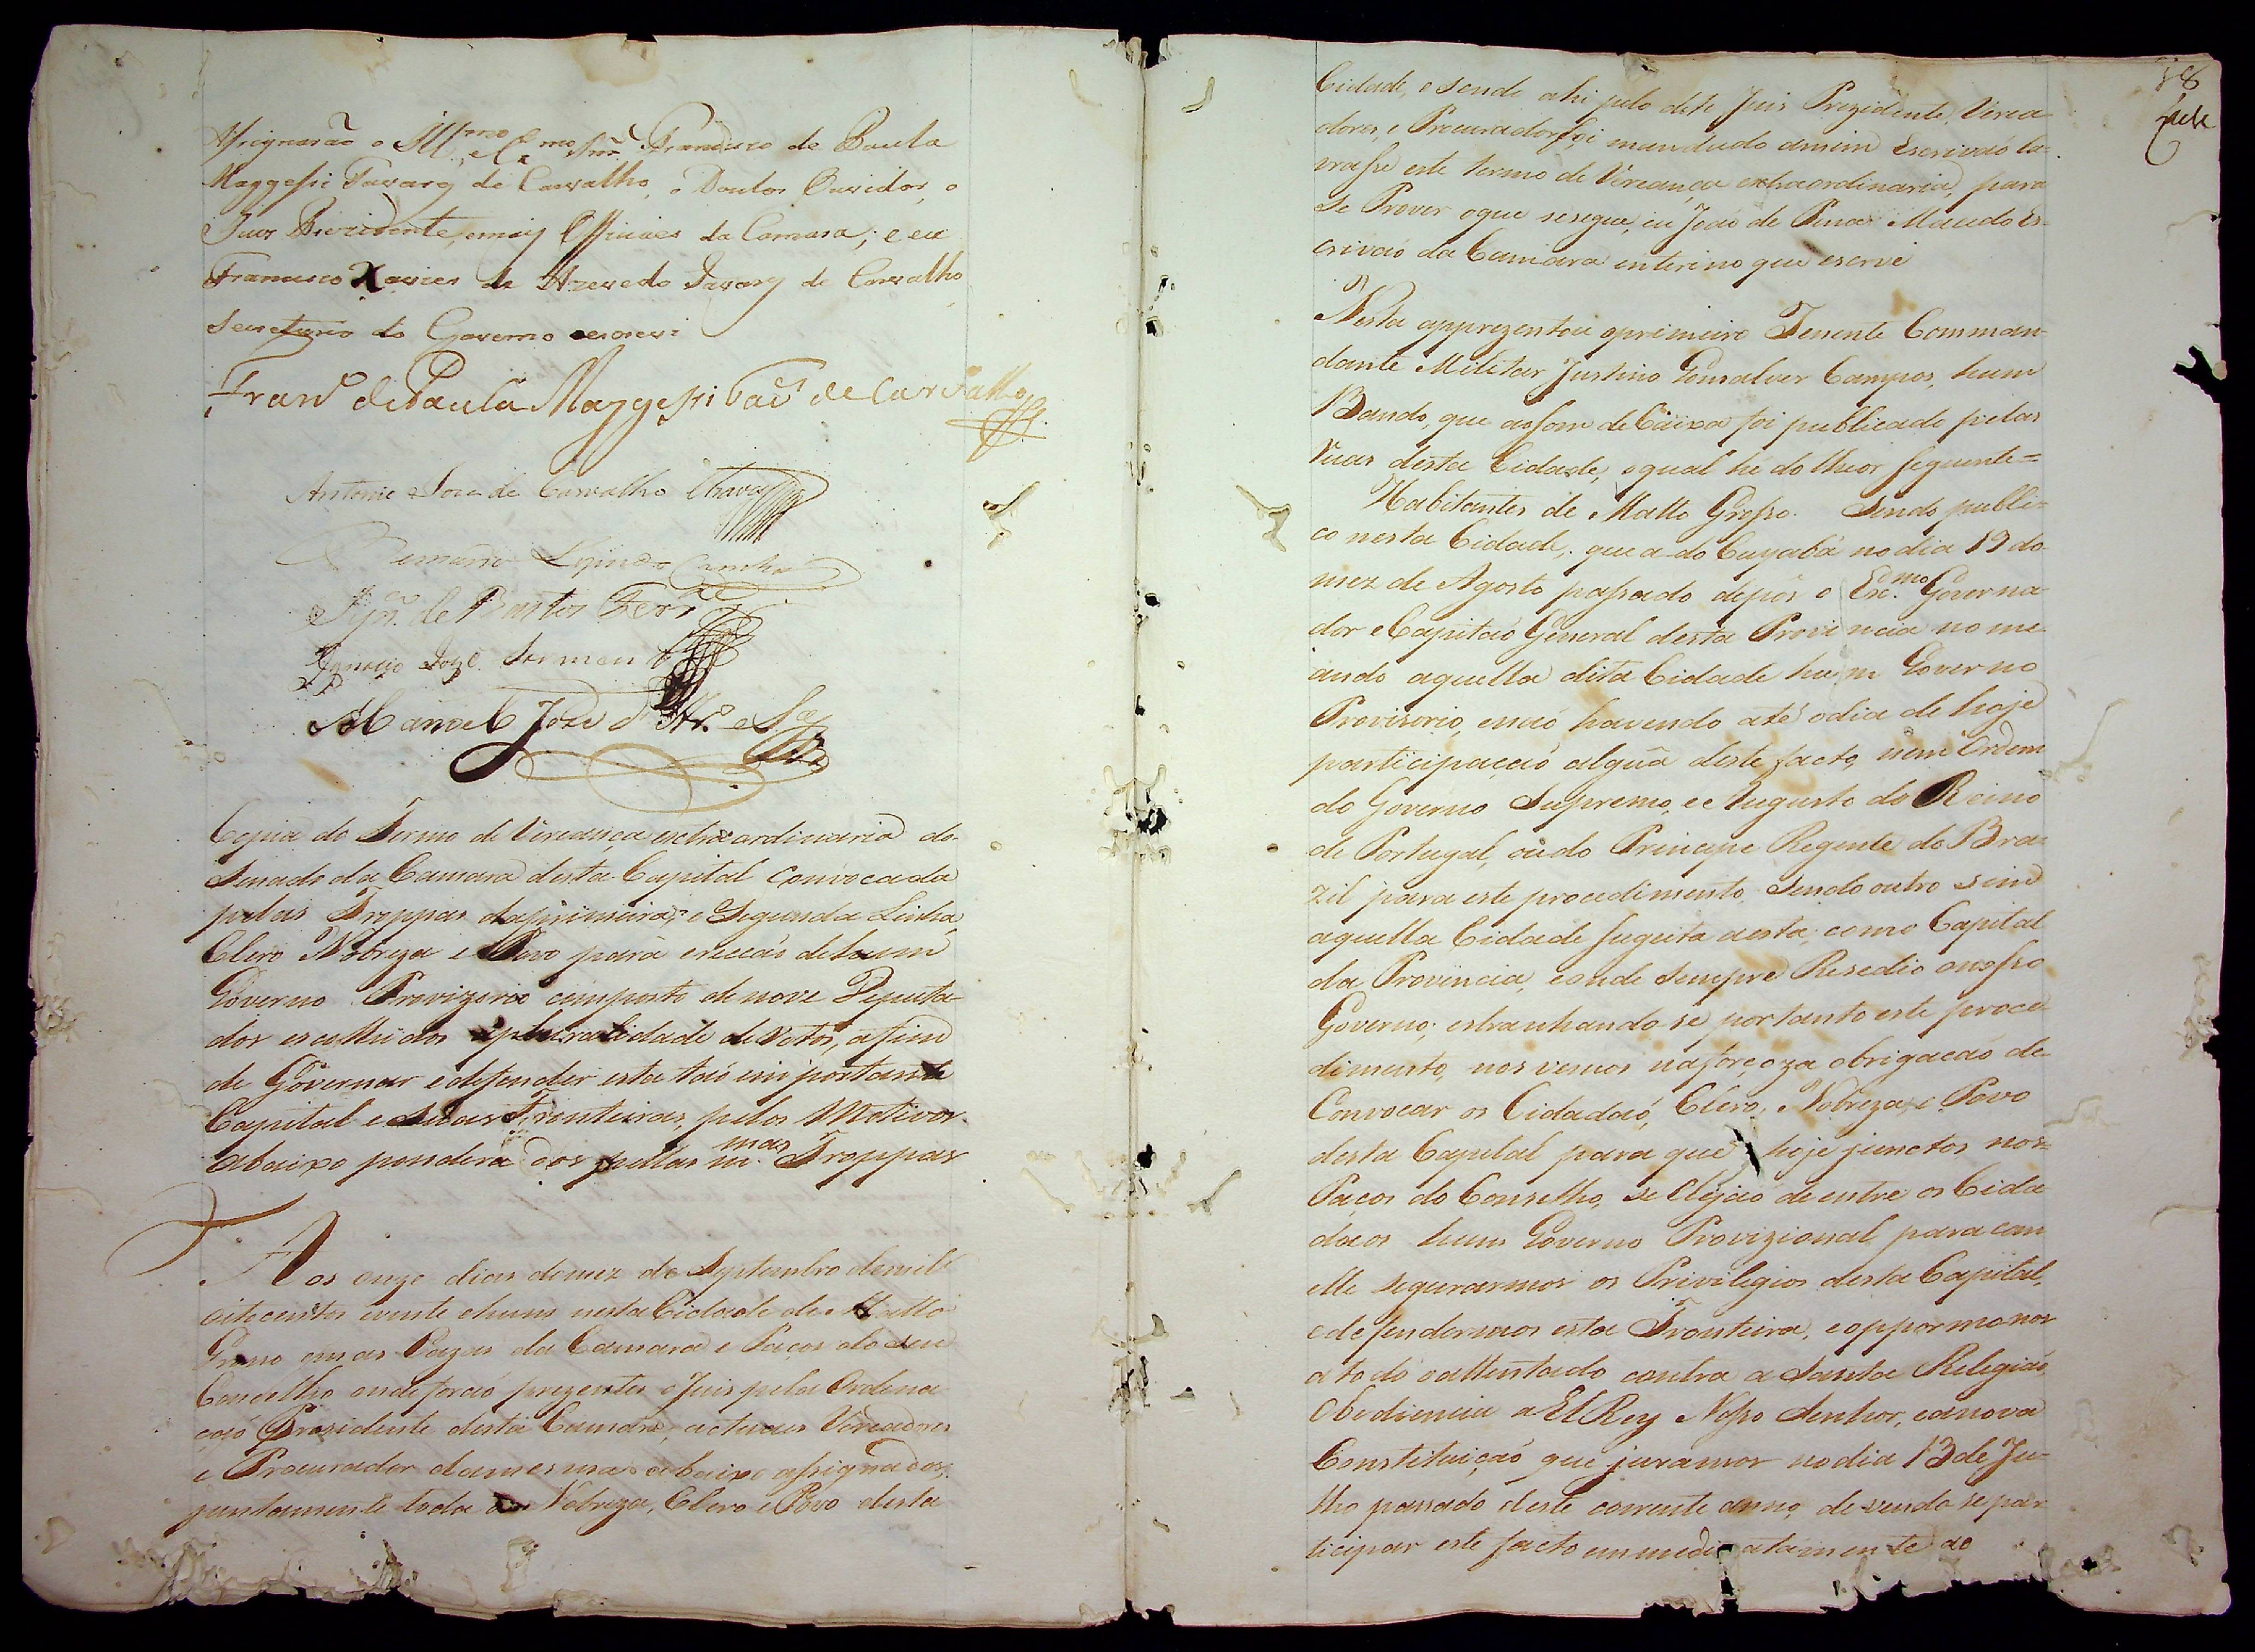 Assignarão o Ill.mo e Ex.mo Snr. Francisco de Paula
Maggessi Tavares de Carvalho, o Doutor Ouvidor, o
Juiz Prezidente, e mais Officiaes da Camara; e eu
Francisco Xavier de Azevedo Tavares de Carvalho
Secretario do Governo o escrevi
Fran.co de Paula Maggessi Tav.es de Carvalho
Antonio Joze de Carvalho Chaves
Bernardo
de Bastos Ferr.a
Ignacio Joze Sarmen.to
Manoel Joze d'
Copia do Termo de Vereança extraordinaria do
Senado da Camara desta Capital convocada
pelas Troppas da primeira, e Segunda Linha,
Clero Nobreza e Povo para erecção de hum
Governo Provizorio composto de nove Deputa
dos escolhidos a pluralidade de votos, afim
de Governar e defender esta tão importante
Capital e suas Fronteiras, pelos Motivos
abaixo ponderados pellas m.mas Troppas
Aos onze dias do mez de Septembro de mil
oitocentos vinte e hum nesta Cidade de Matto
Grosso em as Cazas da Camara e Paços do seu
Concelho onde forão prezentes o Juis pela Ordena
ção Prezidente desta Camara, actuaes Vereadores
e Procurador da mesma abaixo assignados,
juntamente toda a Nobreza, Clero e Povo desta
18
Cidade, e sendo ahi pelo dito Juis Prezidente, Verea
dores, e Procurador foi mandado a mim Escrivão la-
vrasse este termo de Vereança extraordinaria, para
se Prover o que se segue, eu João de Pina Macedo Es-
crivão da Camara interino que escrevi
Nesta apprezentou o primeiro Tenente Comman-
dante Militar Justino Gonsalves Campos, hum
Bando, que ao som de Caixa foi publicado pelas
Ruas desta Cidade, o qual he do theor seguinte=
Habitantes de Matto Grosso. Sendo publi-
co nesta Cidade, que a do Cuyabá no dia 19 do
mez de Agosto passado depôs o Exc.mo Governa-
dor e Capitão General desta Provincia nome-
ando aquella dita Cidade hum Governo
Provisorio, e não havendo até o dia de hoje
participação algũa deste facto, nem Ordem
do Governo Supremo, e Augusto do Reino
de Portugal, ou do Principe Regente do Bra-
zil para este procedimento. Sendo outro sim
aquella Cidade sugeita a esta, como Capital
da Provincia, e onde sempre Resedio o nosso
Governo; estranhando-se portanto este proce-
dimento, nos vemos na forçoza obrigação de
Convocar os Cidadão, Clero, Nobreza, e Povo
desta Capital para que hoje junctos nos
Paços do Conselho, se Elejão de entre os Cida
daos hum Governo Provizional para com
elle segurarmos os Privilegios desta Capital,
e defendermos esta Fronteira, e oppormonos
a todo o attentado contra a Santa Religião,
Obediencia a El Rey Nosso Senhor, e a nova
Constituição que juramos no dia 13 de Ju-
lho passado deste corrente anno, devendo se par
ticipar este facto immediatamente ao